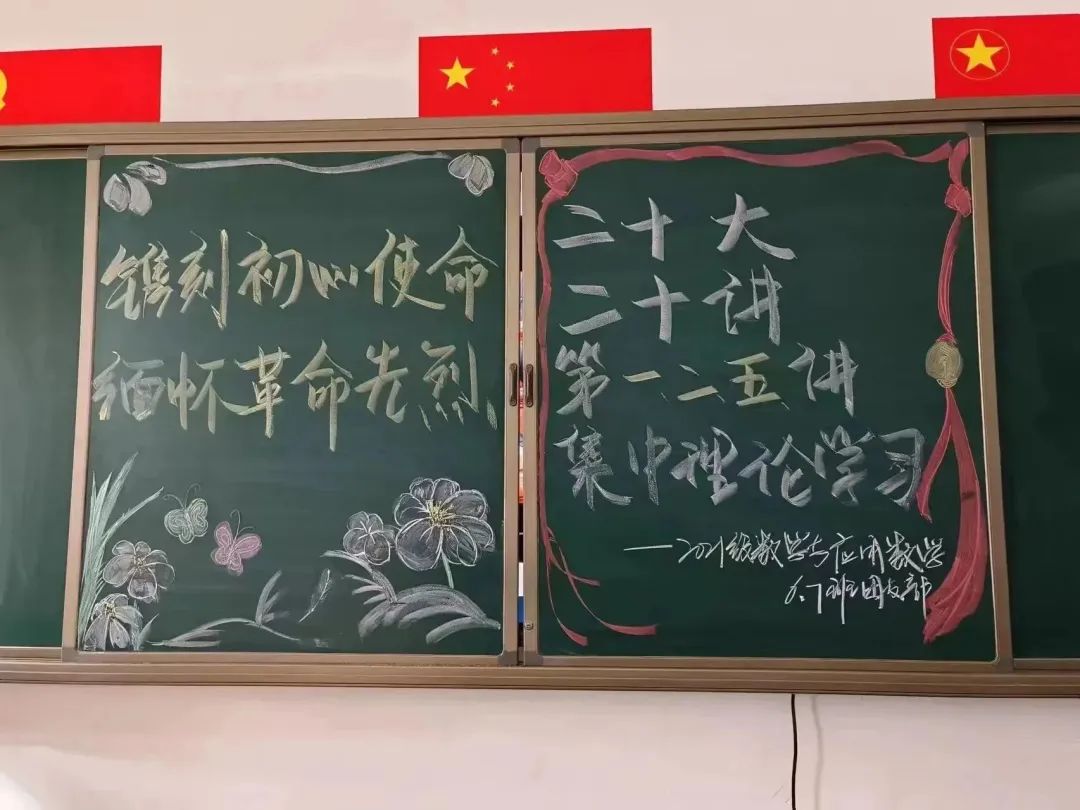 镌刻初心使命
缅怀革命先烈
二十大
二十讲
第一二五讲
集中理论学习
——2021级数学与应用数学
班团支部